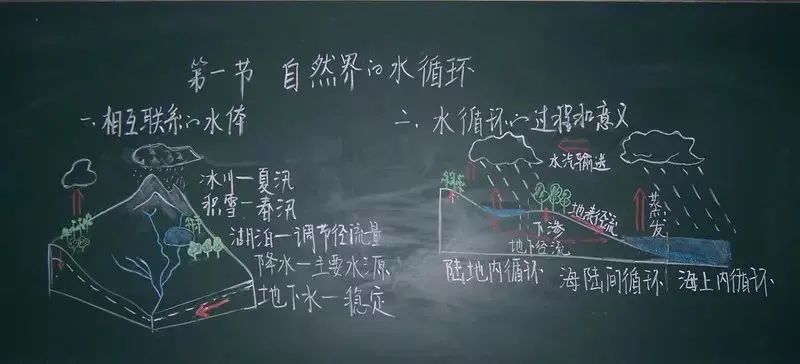 第一节 自然界的水循环
一、相互联系的水体
冰川—夏汛
积雪—春汛
湖泊—调节径流量
降水—主要水源
地下水—稳定
二、水循环的过程和意义
水汽输送
蒸发
地表径流
下渗
地下径流
陆地内循环 海陆间循环 海上内循环